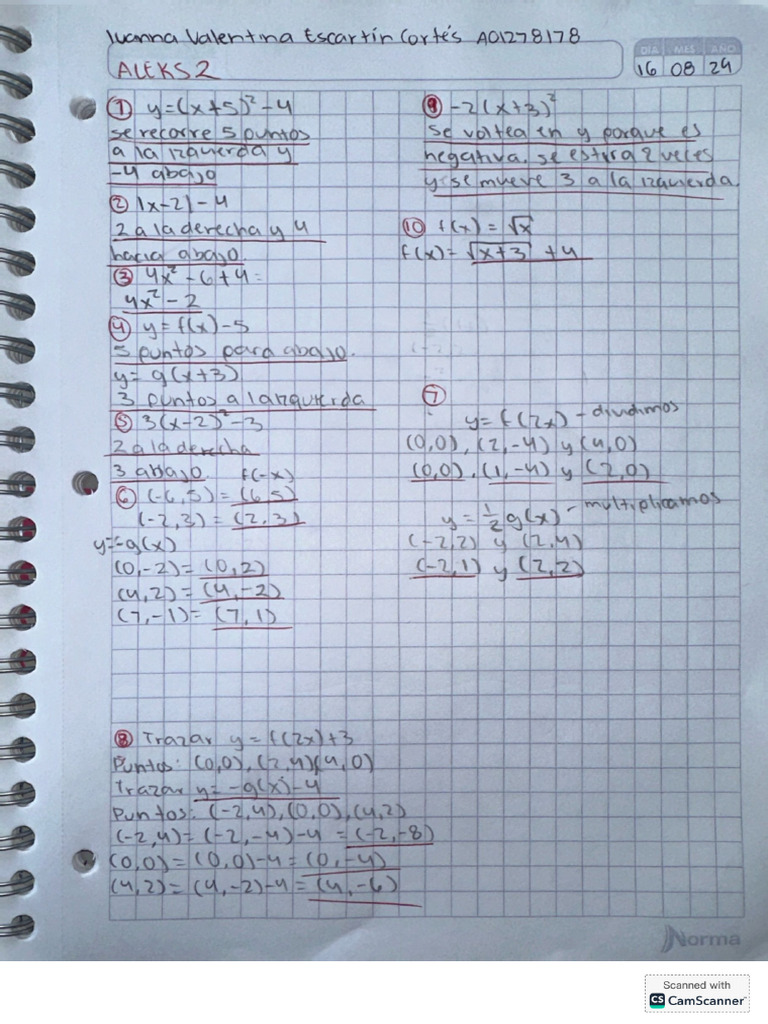 Ivanna Valentina Escartín Cortés A01278178
DIA MES AÑO
16 08 24
ALEKS 2
① y=(x+5)²-4
se recorre 5 puntos
a la izquierda y
-4 abajo
② |x-2|-4
2 a la derecha y 4
hacia abajo.
③ 4x²-6+4=
4x²-2
④ y=f(x)-5
5 puntos para abajo.
y=g(x+3)
3 puntos a la izquierda
⑤ 3(x-2)²-3
2 a la derecha
3 abajo.
f(-x)
⑥ (-6,5)=(6,5)
(-2,3)=(2,3)
y=-g(x)
(0,-2)=(0,2)
(4,2)=(4,-2)
(7,-1)=(7,1)
⑧ Trazar y=f(2x)+3
Puntos: (0,0),(2,4)(4,0)
Trazar y=-g(x)-4
Puntos: (-2,4),(0,0),(4,2)
(-2,4)=(-2,-4)-4=(-2,-8)
(0,0)=(0,0)-4=(0,-4)
(4,2)=(4,-2)-4=(4,-6)
⑨ -2(x+3)²
se voltea en y porque es
negativa. se estira 2 veces
y se mueve 3 a la izquierda.
⑩ f(x)=√x
f(x)=√x+3 +4
⑦
y=f(2x) - dividimos
(0,0),(2,-4) y (4,0)
(0,0),(1,-4) y (2,0)
y=½g(x) - multiplicamos
(-2,2) y (2,4)
(-2,1) y (2,2)
Norma
Scanned with
CS CamScanner